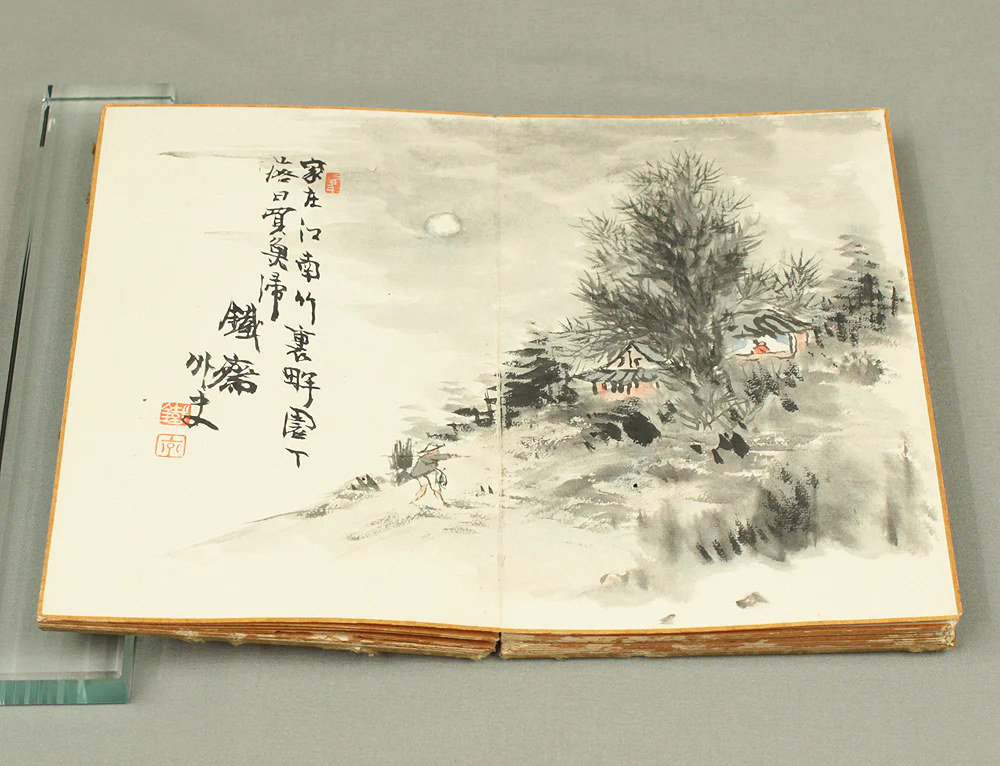 家在江南竹裏畔園丁
落日買魚帰
鐵齋
外史